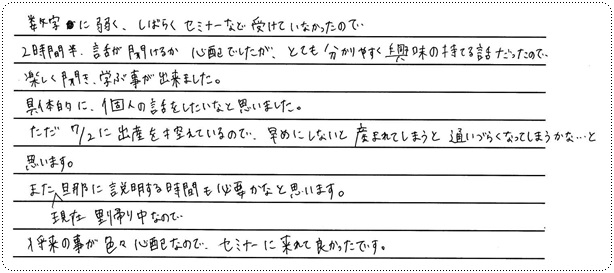 数字に弱く、しばらくセミナーなど受けていなかったので…
2時間半、話が聞けるか心配でしたが、とても分かりやすく興味の持てる話だったので
楽しく聞き、学ぶ事が出来ました。
具体的に、個人の話をしたいなと思いました。
ただ 7/2に出産を控えているので、早めにしないと産まれてしまうと通いづらくなってしまうかな…と
思います。
また旦那に説明する時間も必要かなと思います。
現在里帰り中なので
将来の事が色々心配なので、セミナーに来れて良かったです。